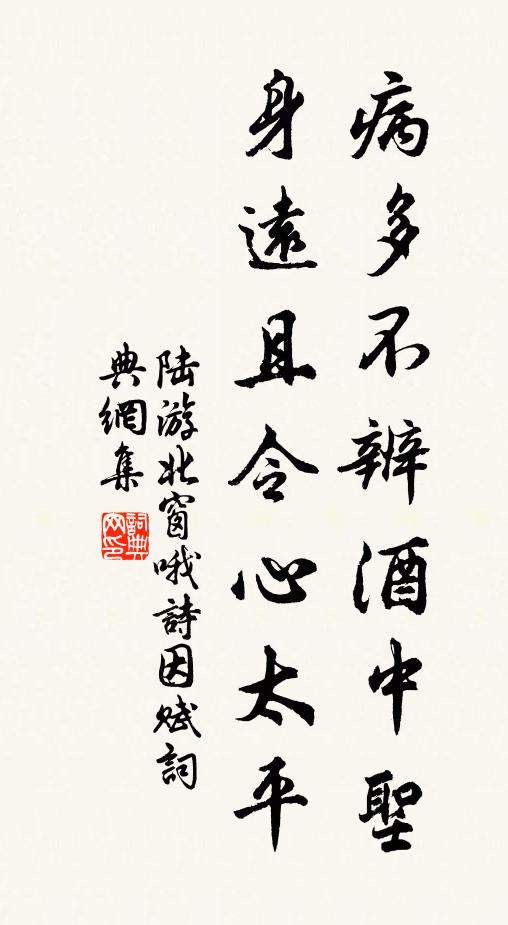 病多不辨酒中聖
身遠且令心太平
陆游北窗哦詩因赋詞
典網集
詞典网印